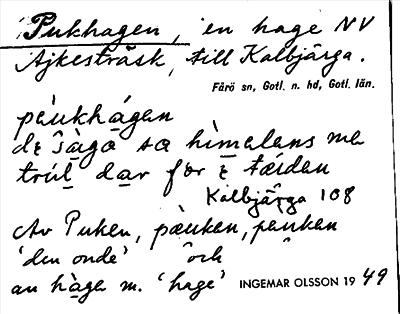 Pukhagen, en hage NV
Ajkesträsk, till Kalbjärga.
Fårö sn, Gotl. n. hd, Gotl. län.
päukhágen
dε sàgo sa hìmelens me
trúl dar for ε tæiden
Kalbjärga 108
Av Puken, pæuken, pæuken
'den onde' och
au hàgen m. 'hage' INGEMAR OLSSON 19 49